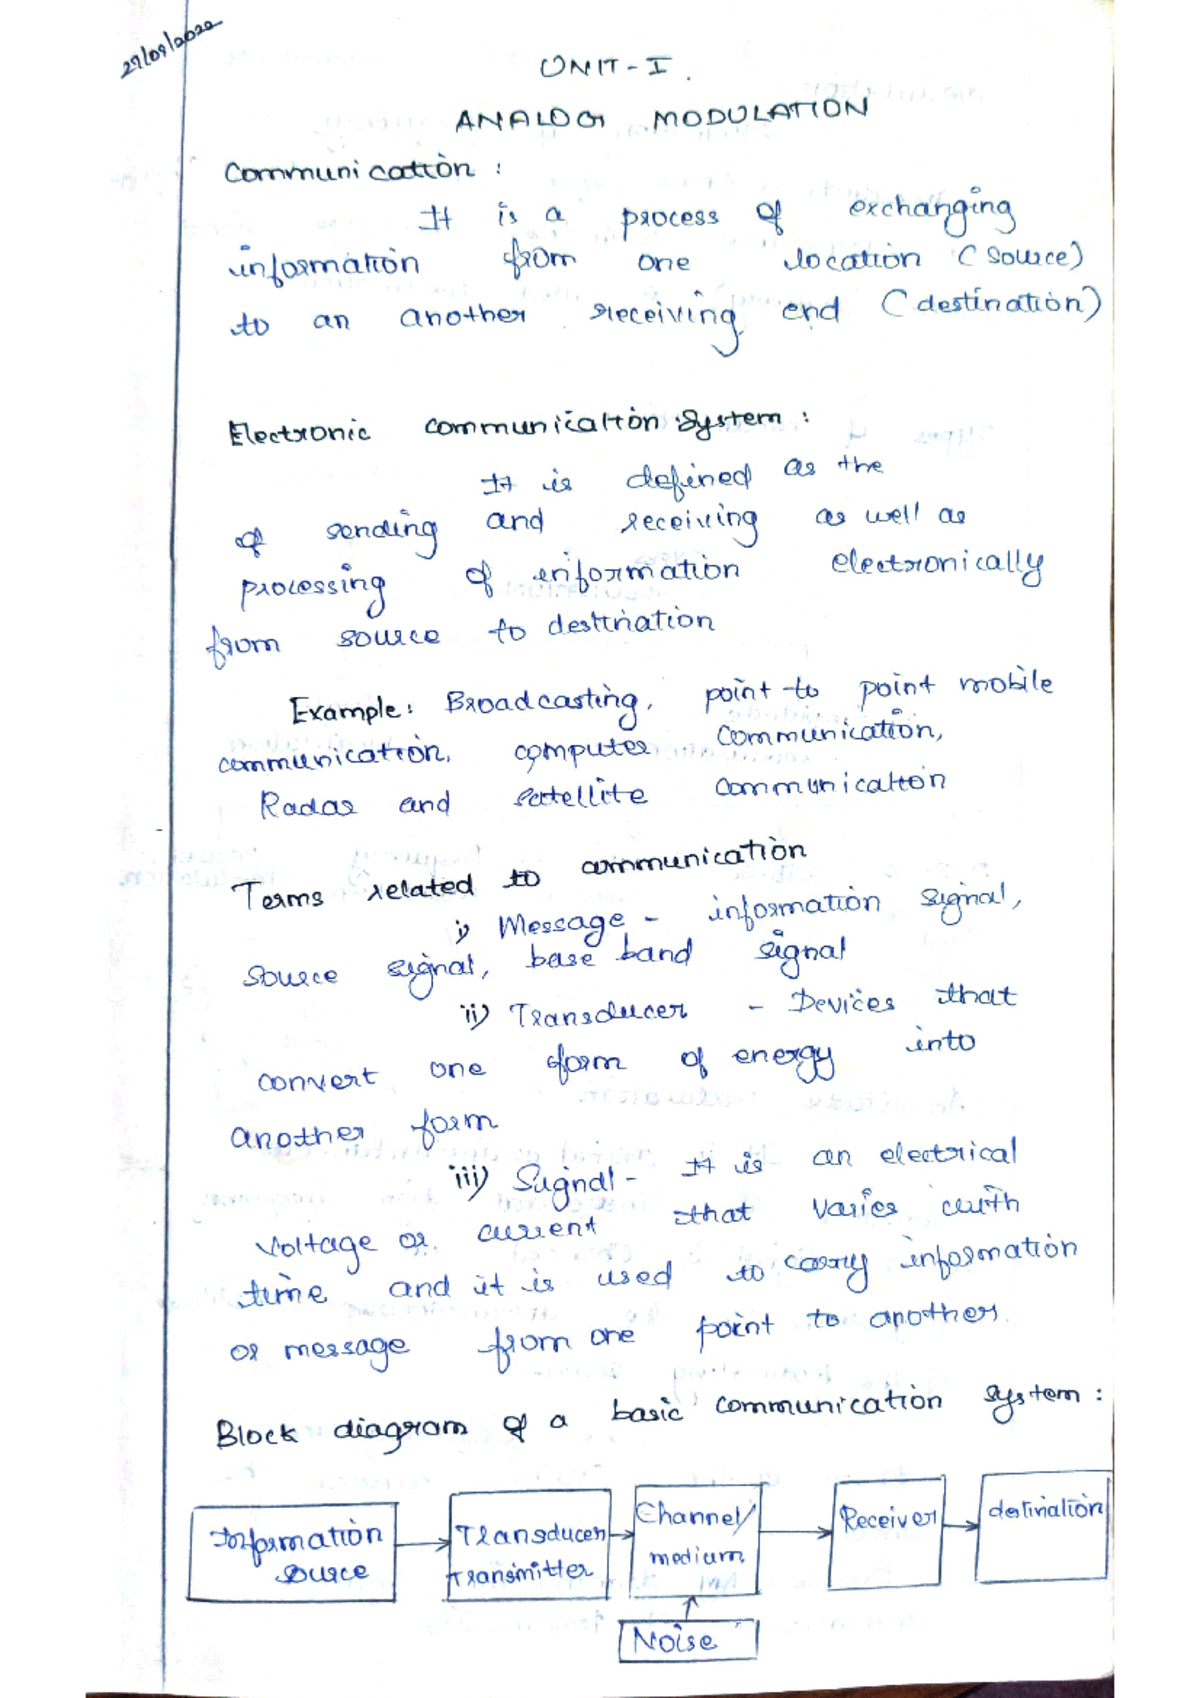 29/09/2020
UNIT - I.
ANALOG MODULATION
Communication :
It is a process of exchanging
information from one location (source)
to an another receiving end (destination)
Electronic communication system :
It is defined as the
of sending and receiving as well as
processing of information electronically
from source to destination
Example: Broadcasting, point to point mobile
communication, computer communication,
Radar and satellite communication
Terms related to communication
i) Message - information signal,
source signal, base band signal
ii) Transducer - Devices that
convert one form of energy into
another form
iii) Signal - It is an electrical
voltage or current that varies with
time and it is used to carry information
or message from one point to another.
Block diagram of a basic communication system :
Information source
Transducer transmitter
Channel/ medium
Receiver
destination
Noise